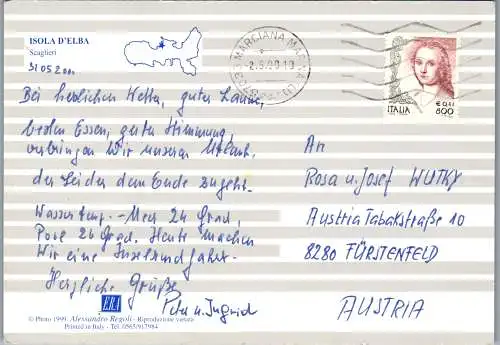 ISOLA D'ELBA
Scaglieri
31052000
MARCIANA MARINA (LI)
2.6.00.19
ITALIA
€ 0,41
800
Bei herrlichem Wetter, guter Laune,
besten Essen, guter Stimmung,
verbringen Wir unseren Urlaub,
der leider dem Ende zugeht.
Wassertemp. - Meer 24 Grad,
Pool 26 Grad. Heute machen
Wir eine Inselrundfahrt.
Herzliche Grüße
Peter u. Ingrid
An
Rosa u. Josef WUTKY
Austria Tabakstraße 10
8280 FÜRSTENFELD
AUSTRIA
ERA
© Photo 1999. Alessandro Regoli - Riproduzione vietata
Printed in Italy - Tel. 0565/917984